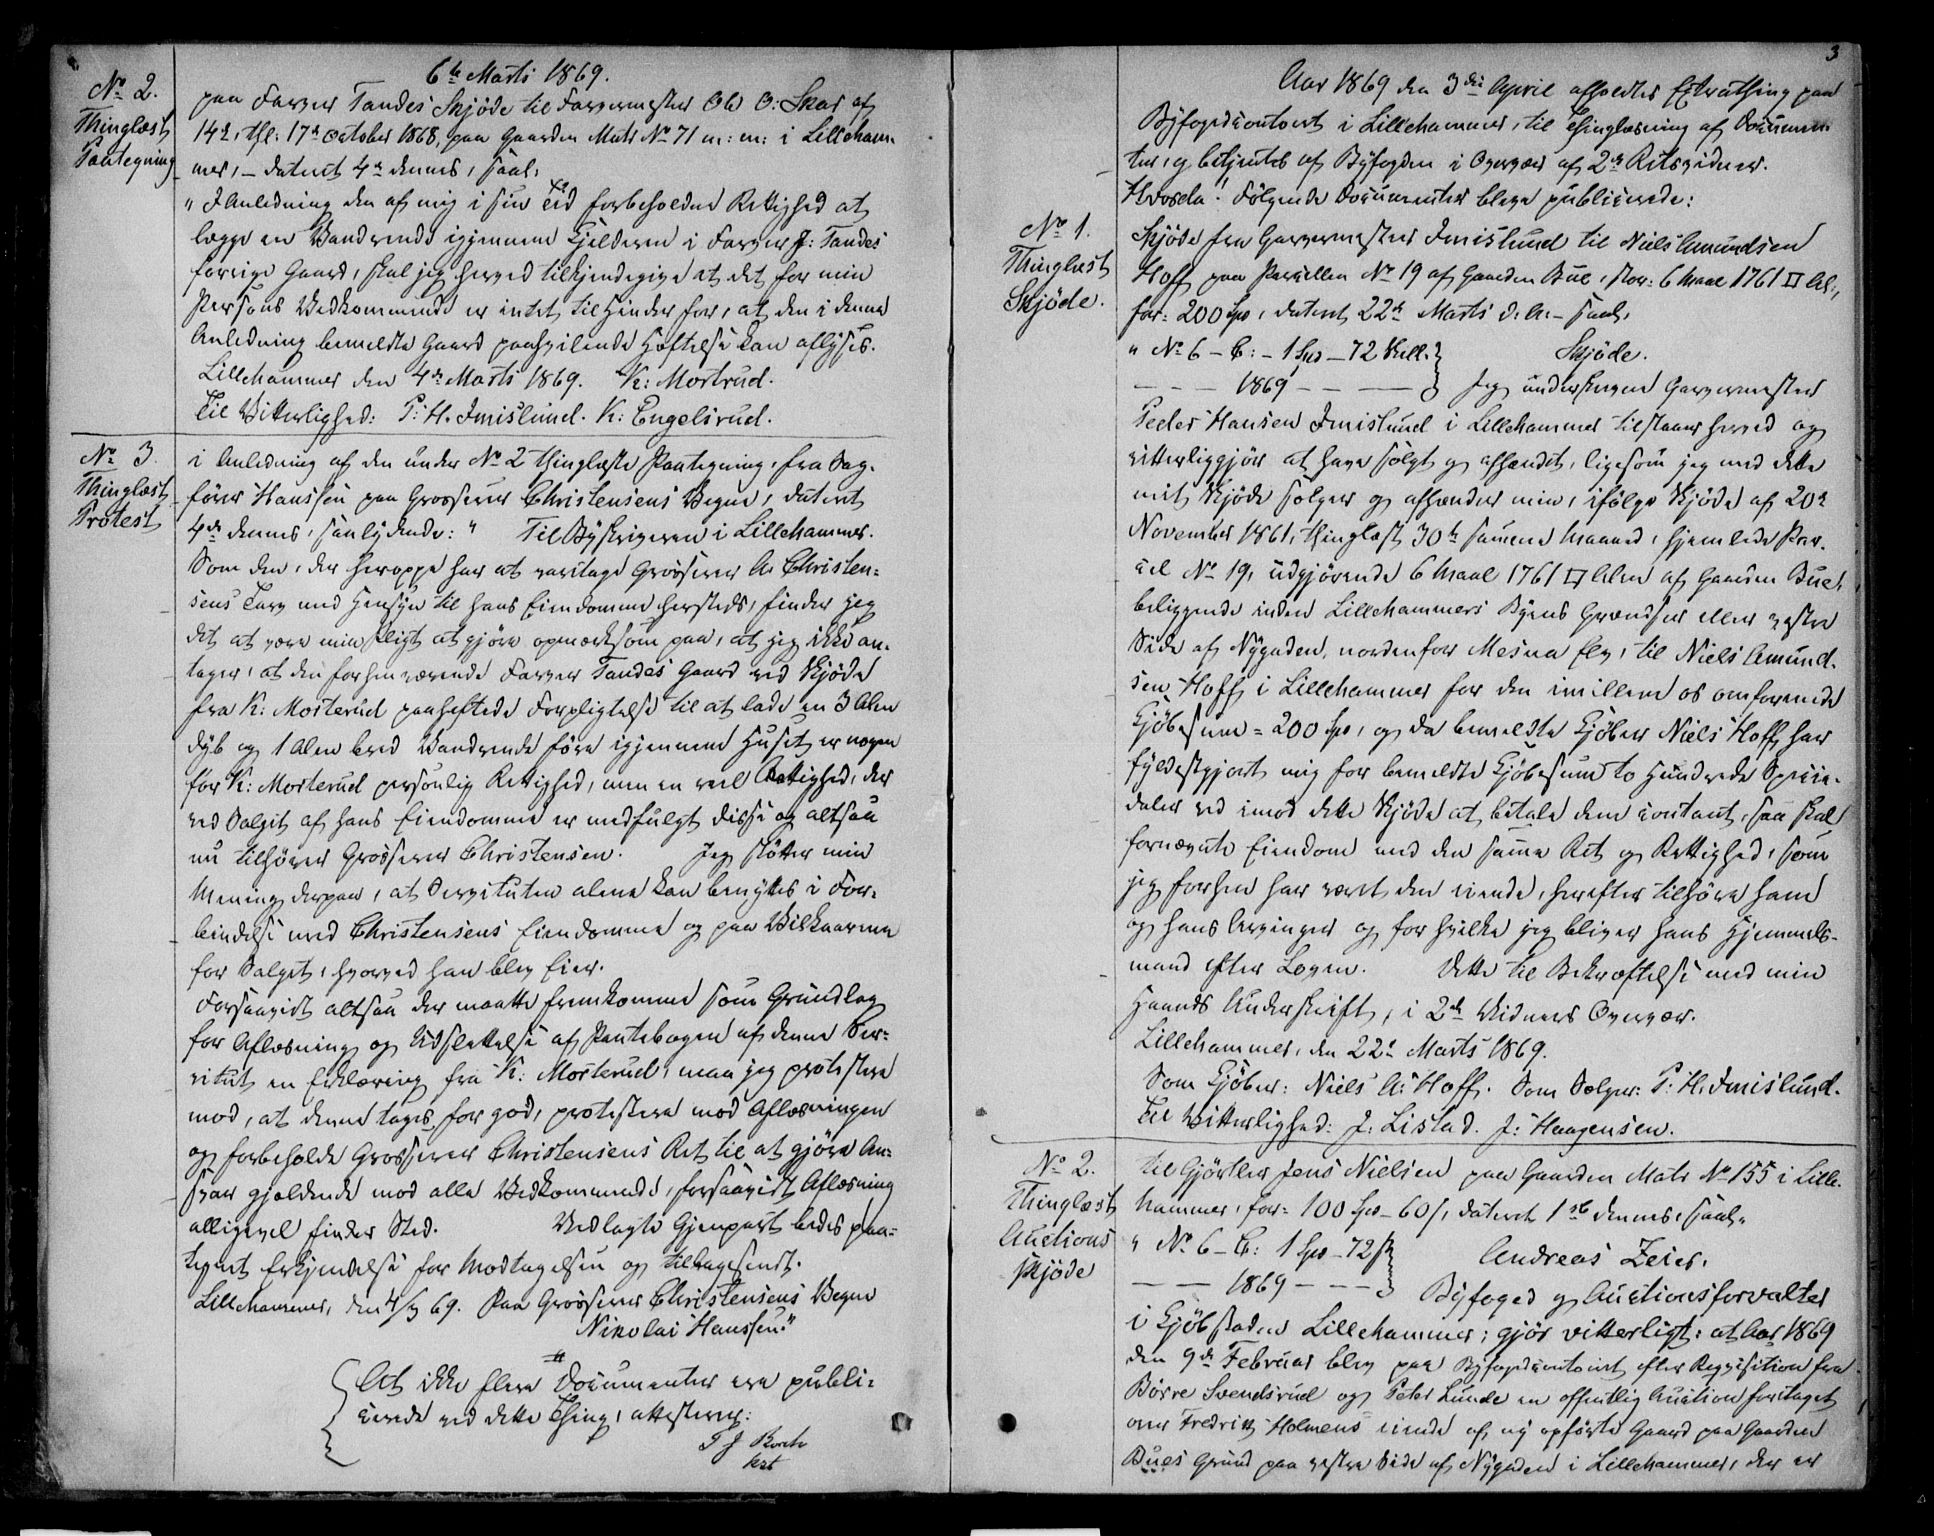 6te Marts 1869.
No 2.
Thinglæst
Paategning
paa Farver Tandes Skjöde til Farvermester Ole O: Skar af
14de, thl: 17de October 1868, paa Gaarden Matr No 71 m: m: i Lilleham-
mer, – dateret 4de dennes, saal.
"I Anledning den af mig i sin Tid forbeholdne Rettighed at
lægge en Vandrende igjennem Kjelderen i Farver J: Tandes
forrige Gaard, skal jeg herved tilkjendegive at det for min
Persons Vedkommende er intet til Hinder for, at den i denne
Anledning bemeldte Gaard paahvilende Heftelse kan aflyses.
Lillehammer den 4de Marts 1869. K: Mortrud.
Til Vitterlighed: P: H. Imislund. K: Engelsrud.
No 3.
Thinglæst
Protest
i Anledning af den under No 2 thinglæste Paategning, fra Sag-
förer Hanssen paa Grosserer Christensens Vegne, dateret
4de dennes, saalydende: " Til Byskriveren i Lillehammer.
Som den, der heroppe har at varetage Grosserer A. Christen-
sens Tarv med Hensyn til hans Eiendomme hersteds, finder jeg
det at være min Pligt at gjöre opmærksom paa, at jeg ikke an-
tager, at den forhenværende Farver Tandes Gaard ved Skjöde
fra K: Mosterud paaheftede Forpligtelse til at lade en 3 Alen
dyb og 1 Alen bred Vandrende före igjennem Huset, er nogen
for K: Mosterud personlig Rettighed, men en reel Rettighed, der
ved Salget af hans Eiendomme er medfulgt disse og altsaa
nu tilhörer Grosserer Christensen. Jeg stötter min
Mening derpaa, at Servituten alene kan benyttes i For-
bindelse med Christensens Eiendomme og paa Vilkaarene
for Salget, hvorved han blev Eier.
Forsaavidt altsaa der maatte fremkomme som Grundlag
for Aflæsning og Udslettelse af Pantebogen af denne Ser-
vitut en Erklæring fra K: Mosterud, maa jeg protestere
mod, at denne tages for god, protestere mod Aflæsningen
og forbeholde Grosserer Christensens Ret til at gjöre An-
svar gjældende mod alle Vedkommende, forsaavidt Aflæsning
alligevel finder Sted. Vedlagte Gjenpart bedes paa-
tegnet Erkjendelse for Modtagelsen og tilbagesendt.
Lillehammer, den 4/3 69. Paa Grosserer Christensens Vegne
Nikolai Hanssen."
At ikke flere Documenter ere publi-
cerede ved dette Thing, attesterer:
3
Aar 1869 den 3die April afholdtes Extrathing paa
Byfogedcontoret i Lillehammer, til Thinglæsning af Documen-
ter, og betjentes af Byfogden i Overvær af 2de Retsvidner.
Hvorda! Fölgende Documenter bleve publicerede:
No 1.
Thinglæst
Skjöde.
Skjöde fra Garvermester Imislund til Niels Amundsen
Hoff paa Parcellen No 19 af Gaarden Bue, stor: 6 Maal 1761 □ Al.,
for: 200 Spd, dateret 22de Marts d. A: – saal.
" No 6 – C: – 1 Spd – 72 Skill. Skjöde.
– – – 1869 – – – Jeg underskrevne Garvermester
Peder Hansen Imislund i Lillehammer tilstaar herved og
vitterliggjör at have solgt og afhændet, ligesom jeg med dette
mit Skjöde sælger og afhænder min, ifölge Skjöde af 20de
November 1861, thinglæst 30te samme Maaned, hjemlede Par-
cel No 19, udgjörende 6 Maal 1761 □ Alen af Gaarden Bue,
beliggende inden Lillehammers Byens Grændser eller vestre
Side af Nygaden, nordenfor Mesna Elv, til Niels Amund-
sen Hoff i Lillehammer for den imellem os omforenede
Kjöbesum = 200 Spd, og da bemeldte Kjöber Niels Hoff har
fyldestgjort mig for bemeldte Kjöbesum to Hundrede Specie-
daler ved imod dette Skjöde at betale dem contant, saa skal
fornævnte Eiendom med den samme Ret og Rettighed, som
jeg forhen har været den eiende, herefter tilhöre ham
og hans Arvinger og for hvilke jeg bliver hans Hjemmels-
mand efter Loven. Dette til Bekræftelse med min
Haands Underskrift, i 2de Vidners Overvær.
Lillehammer, den 22de Marts 1869.
Som Kjöber: Niels A: Hoff. Som Sælger: P: H. Imislund.
Til Vitterlighed: J: Listad. J: Haagensen.
No 2.
Thinglæst
Auctions
skjöde
til Gjörtler Jens Nielsen paa Gaarden Matr No 155 i Lille-
hammer, for: 100 Spd – 60 s, dateret 1ste dennes, saal.
" No 6 – C: 1 Spd – 72 s Andreas Zeier,
– – 1869 – – – Byfoged og Auctionsforvalter
i Kjöbstaden Lillehammer; gjör vitterligt: at Aar 1869
den 9de Februar blev paa Byfogedcontoret efter Reqvisition fra
Börre Svendsrud og Peter Lunde en offentlig Auction foretaget
over Fredrik Holmens eiende af ny opförte Gaard paa Gaarden
Bues Grund paa vestre Side af Nygaden i Lillehammer, der er